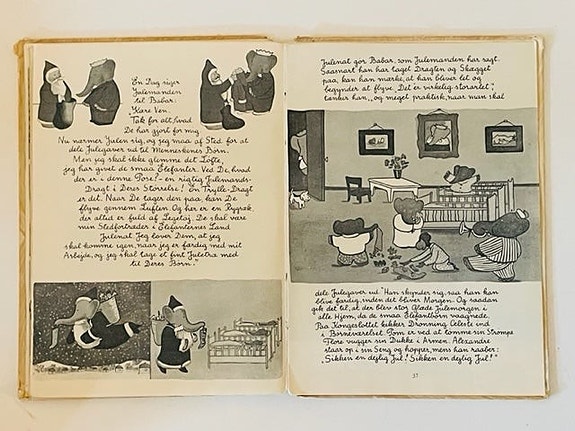 En Dag siger
Julemanden
til Babar:
Kære Ven.
Tak for alt, hvad
De har gjort for mig.
Nu nærmer Julen sig, og jeg maa af Sted for at
dele Julegaver ud til Menneskenes Børn.
Men jeg skal ikke glemme det Løfte,
jeg har givet de smaa Elefanter. Ved De, hvad
der er i denne Pose? - en rigtig Julemands-
Dragt i Deres Størrelse! En Trylle-Dragt
er det. Naar De tager den paa, kan De
flyve gennem Luften. Og her er en Rygsæk
der altid er fuld af Legetøj. De skal være
min Stedfortræder i Elefanternes Land
Julenat. Jeg lover Dem, at jeg
skal komme igen, naar jeg er færdig med mit
Arbejde, og jeg skal tage et fint Juletræ med
til Deres Børn."
Julenat gør Babar, som Julemanden har sagt.
Saasnart han har taget Dragten og Skægget
paa, kan han mærke, at han bliver let og
begynder at flyve. „Det er virkelig storartet",
tænker han, „og meget praktisk, naar man skal
dele Julegaver ud." Han skynder sig, saa han kan
blive færdig, inden det bliver Morgen. Og saadan
gik det til, at der blev stor Glæde Julemorgen i
alle Hjem, da de smaa Elefantbørn vaagnede.
Paa Kongeslottet kikker Dronning Celeste ind
i Børneværelset. Pom er ved at tømme sin Strømpe
Flore vugger sin Dukke i Armen. Alexandre
staar op i sin Seng og hopper, mens han raaber:
„Sikken en dejlig Jul! Sikken en dejlig Jul!"
37